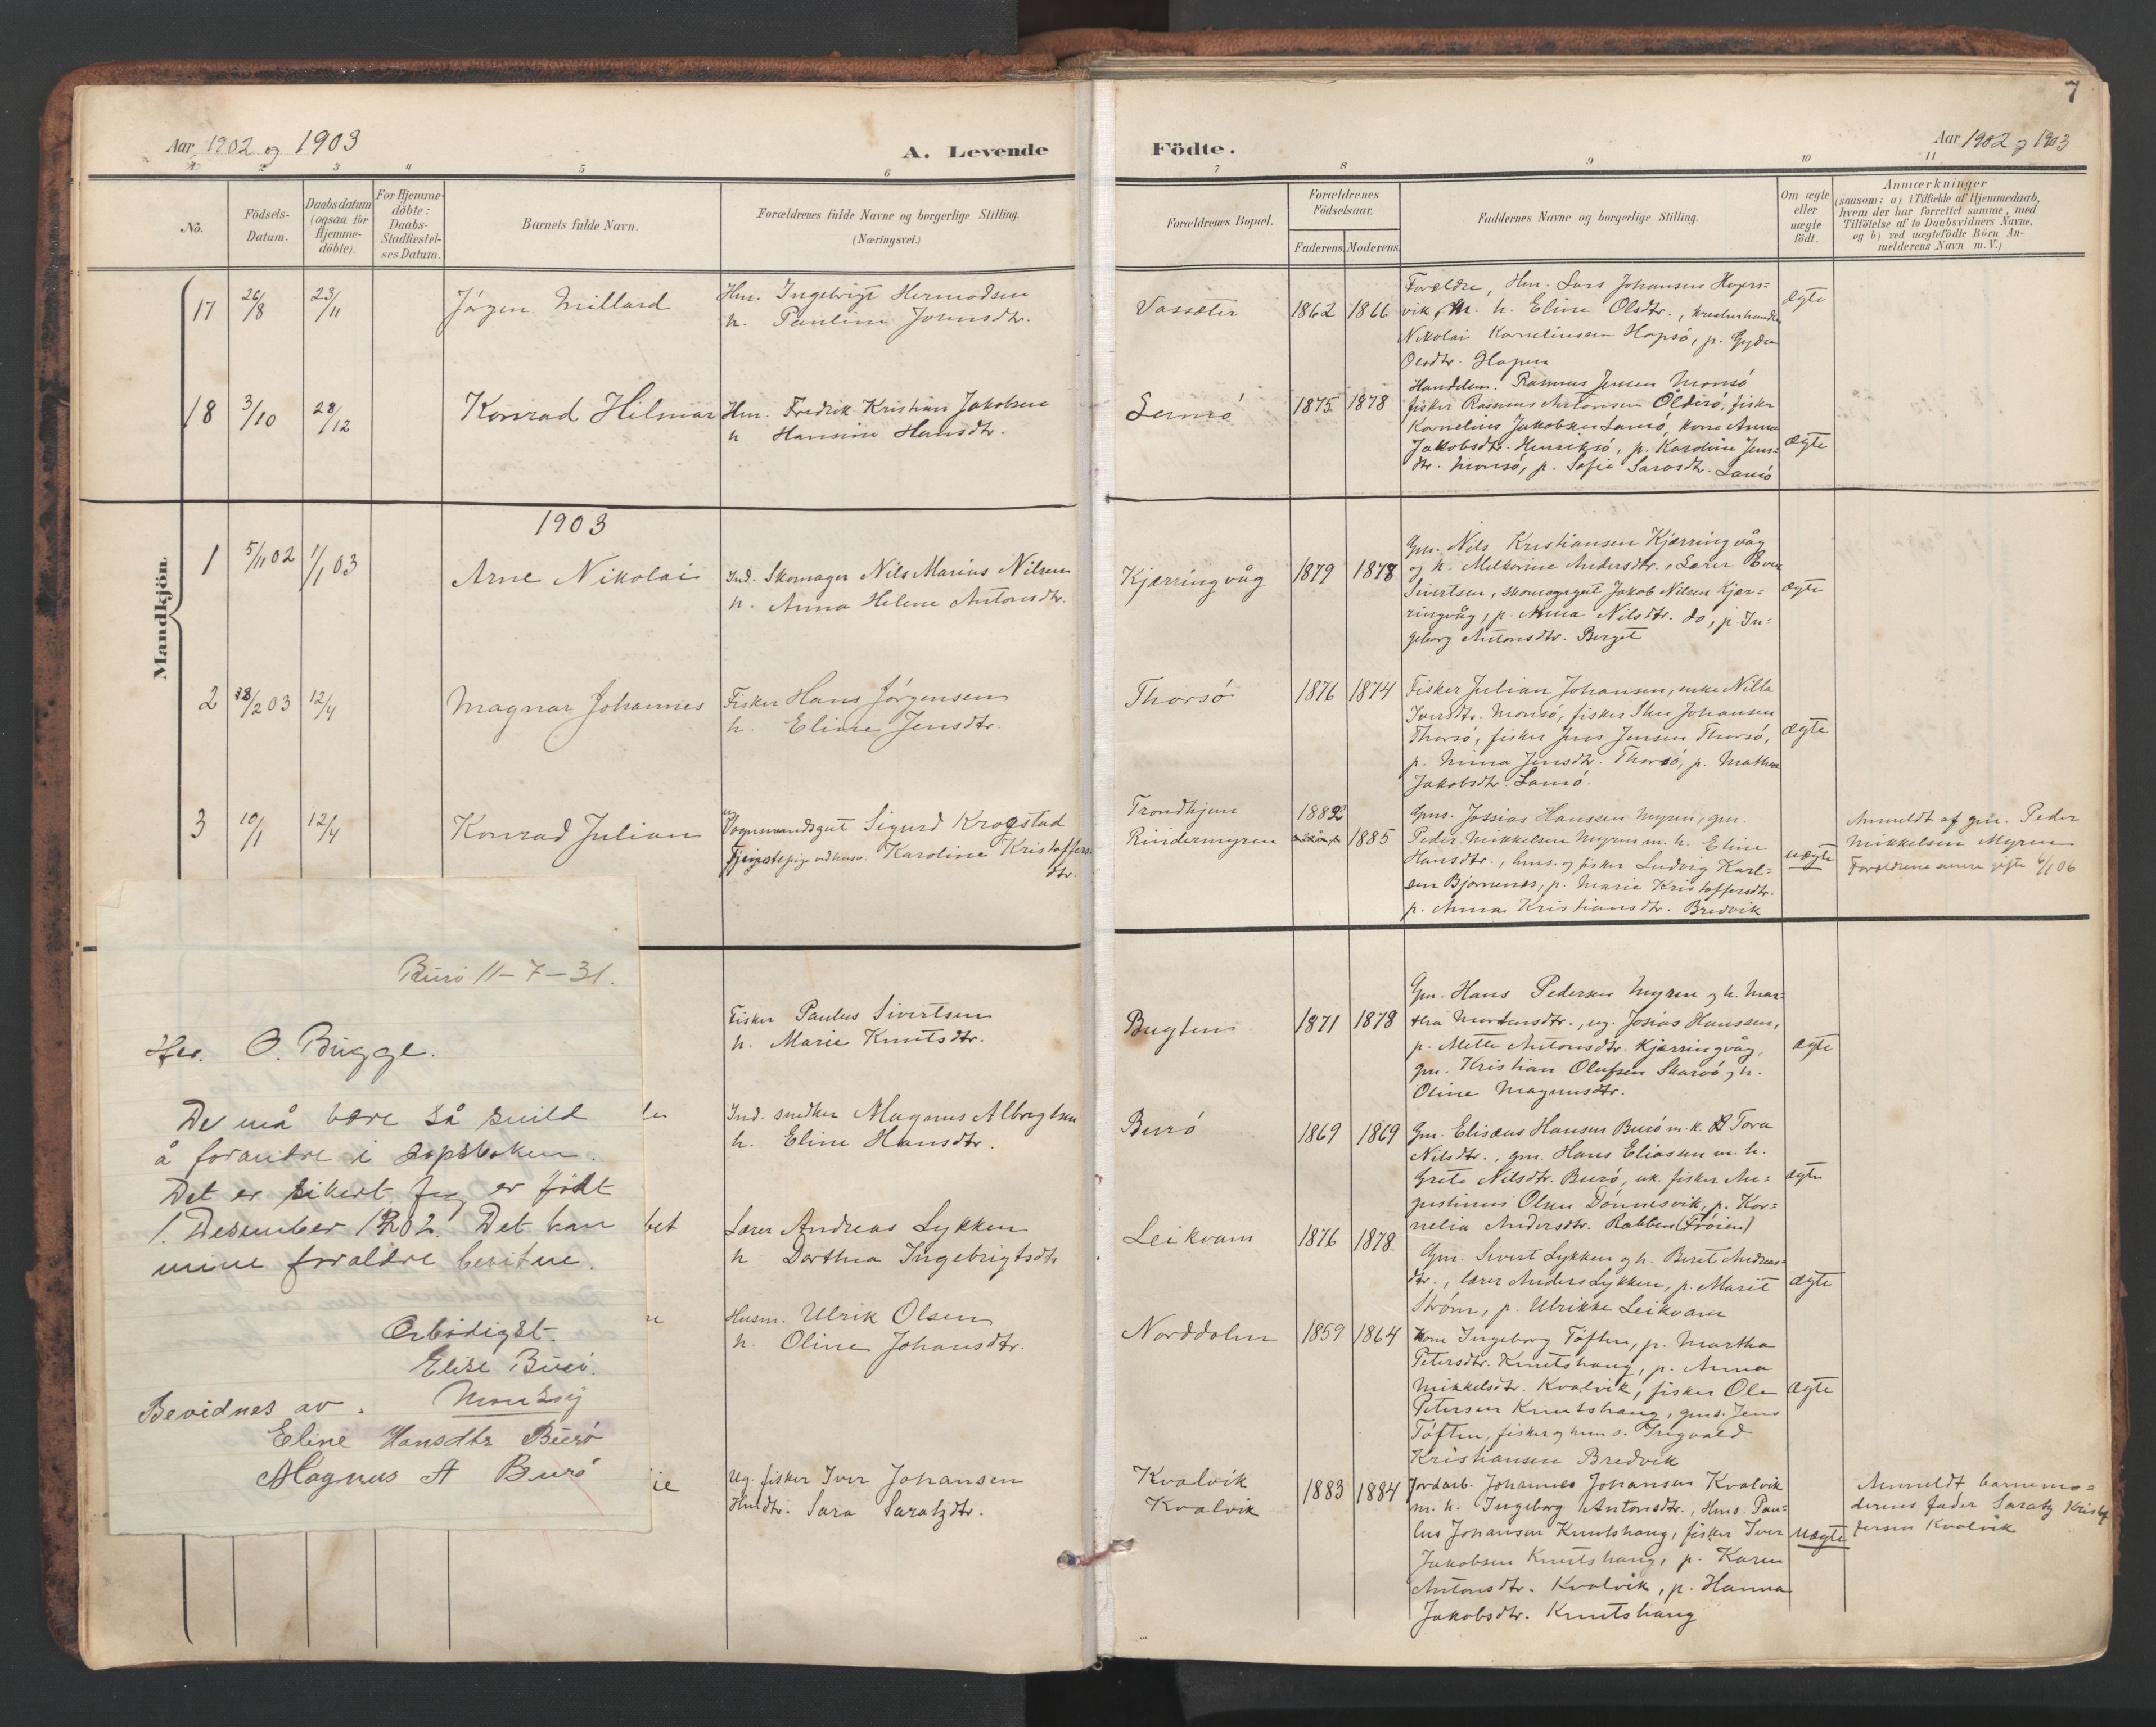 7
Aar 1902 og 1903
A. Levende
Födte.
Aar 1902 og 1903
1 2 3 4 5 6
7 8 9 10 11
No.
Födsels-
Datum.
Daabsdatum
(ogsaa for
Hjemme-
döbte).
For Hjemme-
döbte:
Daabs-
Stadfæstel-
ses Datum.
Barnets fulde Navn.
Forældrenes fulde Navne og borgerlige Stilling.
(Næringsvei.)
Forældrenes Bopæl.
Forældrenes
Födselsaar.
Faderens.
Moderens.
Faddernes Navne og borgerlige Stilling.
Om ægte
eller
uægte
födt.
Anmærkninger
(saasom: a) i Tilfælde af Hjemmedaab,
hvem der har forrettet samme, med
Tilföielse af to Daabsvidners Navne.
og b) ved uægtefödte Börn An-
melderens Navn m. V.)
Mandkjön.
17 26/8 23/11 Jörgen Millard
Hm. Ingebrigt Hermodsen
h. Pauline Johnsdtr.
Vassæter 1862 1866
Forældre, Hm. Lars Johansen Hopers=
vik, m. h. Eline Olsdtr.,
Nikolai Kornelinsen Hopsö, p. Gyda
Olsdtr. Hopen
ægte
18 3/10 28/12 Konrad Hilmar
Hm. Fredrik Kristian Jakobsen
h. Hansine Hansdtr.
1875 1878
Handelsm. Rasmus Jensen Monsö
fisker Rasmus Antonsen Olderö, fisker
Kornelius Jakobsen Lamö, kone Anna
Jakobsdtr. Henriksö, p. Karoline Jens=
dtr. Monsö, p. Sofie Sarasdtr. Lamö
ægte
1903
1 5/11 02 1/1 03 Arne Nikolai
Ind. Skomager Nils Marius Nilsen
h. Anna Helene Antonsdtr.
Kjærringvåg 1879 1878
Gm. Nils Kristiansen Kjærringvåg
og h. Melkorine Andersdtr., Lærer Even
Sivertsen, skomagergut Jakob Nilsen Kjær=
ringvåg, p. Anna Nilsdtr. do, p. In=
geborg Antonsdtr. Berget
ægte
2 28/2 03 12/4 Magnar Johannes
Fisker Hans Jörgensen
h. Eline Jensdtr.
Thorsö 1876 1874
Fisker Julian Johansen, enke Nilla
Iversdtr. Monsö, fisker Johansen
Thorsö, fisker Jens Jensen Thorsö,
p. Nina Jensdtr. Thorsö, p. Mathea
Jakobsdtr. Lamö.
ægte
3 10/1 12/4 Konrad Julian
ug
Vognmandsgut Sigurd Krogstad
Tjenestepige ved husv. Karoline Kristoffers-
dtr.
Trondhjem 1882
Rindermyren 1885
Gms. Jossias Hansen Myren, gm.
Peder Mikkelsen Myren m. h. Eline
Hansdtr., hms. og fisker Ludvig Karl=
sen Bjørnenes, p. Marie Kristoffersdtr.
p. Anna Kristiansdtr. Bredvik
uægte
Anmeldt af gm. Peder
Mikkelsen Myren
Forældrene senere gifte 6/1 06
Fisker Paulus Sivertsen
h. Marie Knutsdtr.
Bugten 1871 1878
Gm. Hans Pedersen Myren og h. Mar=
tha Mortensdtr., ug. Josias Hansen,
p. Mette Antonsdtr. Kjærringvåg,
gm. Kristian Olufsen Skarvö og h.
Oline Magnusdtr.
ægte
Ind. snedker Magnus Albregtsen
h. Eline Hansdtr.
Burö 1869 1869
Gm. Elisæus Hansen Burö m. h. Tora
Nilsdtr., gm. Hans Eliasen m. h.
Grete Nilsdtr. Burö, uk. fisker Au=
gustinus Olsen Dönnesvik, p. Kor=
nelia Andersdtr. Rabben (Fröien)
ægte
bet
Lærer Andreas Lykken
h Dorthea Ingebrigtsdtr
Leikvam 1876 1878
Gm. Sivert Lykken og h. Berit Andreas=
dtr., lærer Anders Lykken, p. Marit
Ström, p. Ulrikke Leikvam
ægte
Husm. Ulrik Olsen
h. Oline Johansdtr.
Norddalen 1859 1864
Kone Ingeborg Töften, p. Martha
Petersdtr. Knutshaug, p. Anna
Mikkelsdtr. Kvalvik, fisker Ole
Petersen Knutshaug, gms. Jens
Töften, fisker og hms. Ingvald
Kristiansen Bredvik
ægte
ie
Ug. fisker Iver Johansen
Husdtr. Sara Saratzdtr.
Kvalvik
Kvalvik
1883 1884
Jordarb. Johannes Johansen Kvalvik
m. h. Ingeborg Antonsdtr., Hms. Pau=
lus Johansen Knutshaug, fisker Iver
Jakobsen Knutshaug, p. Karen
Antonsdtr. Kvalvik, p. Hanna
Jakobsdtr. Knutshaug
uægte
Anmeldt barnemo=
derens fader Saratz Kristof
fersen Kvalvik
Burö 11-7-31.
Her. O. Bugge.
De må være så snild
å forandre i dopsboken.
Det er sikert jeg er født
1. Desember 1902. Det kan
mine foraldre bevitne.
Ærbødigst.
Elise Burö.
Bevidnes av.
Eline Hansdtr Burö
Magnus A Burö